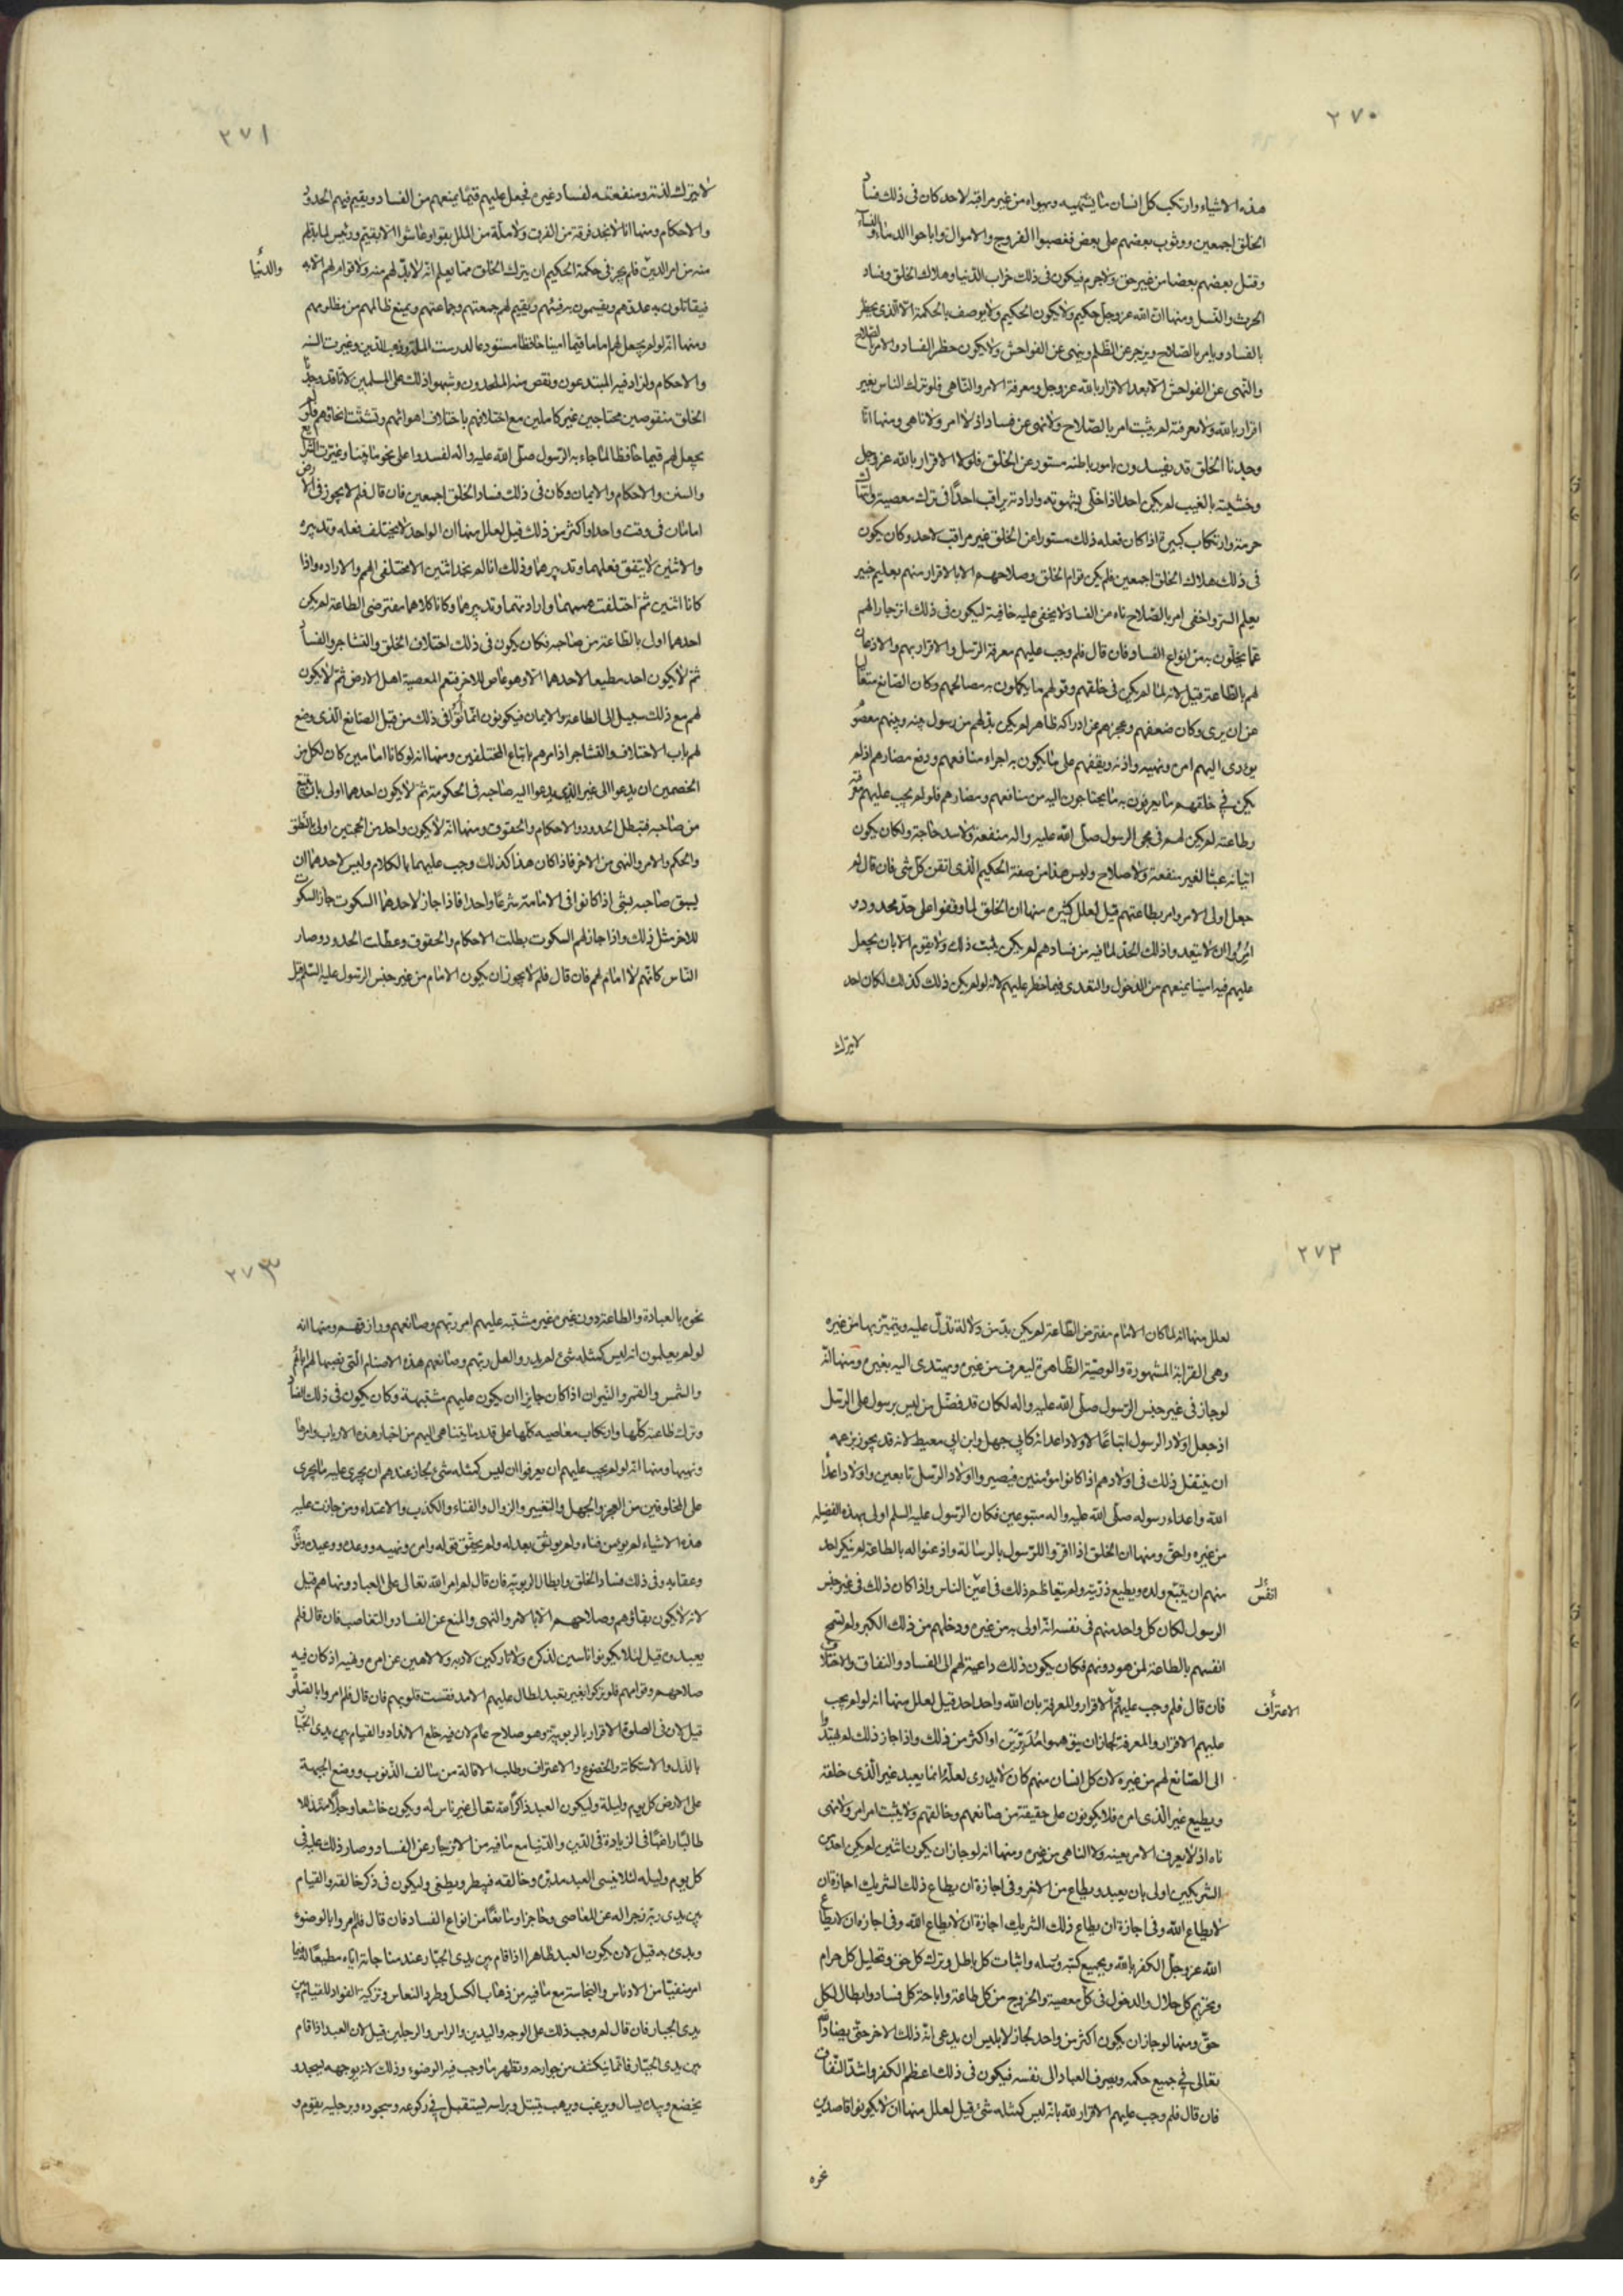 ٢٧٠
هذه الاشياء وارتكب كل انسان ما يشتهيه ويهواه من غير مراقبة لاحد كان فى ذلك فساد
الخلق اجمعين ووثوب بعضهم على بعض فغصبوا الفروج والاموال واباحوا الدماء والنساء
وقتل بعضهم بعضا من غير حق ولا جرم فيكون فى ذلك خراب الدنيا وهلاك الخلق وفساد
الحرث والنسل ومنها ان الله عز وجل حكيم ولا يكون الحكيم ولا يوصف بالحكمة الا الذى يحظر
بالفساد ويامر بالصلاح ويزجر عن الظلم وينهى عن الفواحش ولا يكون حظر الفساد والامر بالصلاح
والنهى عن الفواحش الا بعد الاقرار بالله عز وجل ومعرفة الامر والناهى فلو ترك الناس بغير
اقرار بالله ولا معرفته لم يثبت امر بالصلاح ولا نهى عن فساد اذ لا امر ولا ناهى ومنها انا
وجدنا الخلق قد يفسدون بامور باطنه مستور عن الخلق فلولا الاقرار بالله عز وجل
وخشيته بالغيب لم يكن احد اذا خلى بشهوته وارادته يراقب احدًا فى ترك معصية وانتهاك
حرمة وارتكاب كبيرة اذا كان فعله ذلك مستورا عن الخلق غير مراقب لاحد وكان يكون
فى ذلك هلاك الخلق اجمعين فلم يكن قوام الخلق وصلاحهم الا بالاقرار منهم بعليم خبير
يعلم السر واخفى امر بالصلاح ناه عن الفساد لا يخفى عليه خافية ليكون فى ذلك انزجار لهم
عما يخلون به من انواع الفساد فان قال فلم وجب عليهم معرفة الرسل والاقرار بهم والاذعان
لهم بالطاعة قيل لانه لما لم يكن فى خلقهم وقولهم ما يكملون به مصالحهم وكان الصانع متعاليا
عن ان يرى وكان ضعفهم وعجزهم عن ادراكه ظاهر لم يكن بد لهم من رسول بينه وبينهم معصوم
يودى اليهم امره ونهيه واذنه ويقفهم على ما يكون به اجراء منافعهم ودفع مضارهم اذ لم
يكن في خلقهم ما يعرفون به ما يحتاجون اليه من منافعهم ومضارهم فلو لم يجب عليهم معرفته
وطاعته لم يكن لهم فى مجى الرسول صلى الله عليه واله منفعة ولا سد حاجة ولكان يكون
اتيانه عبثا لغير منفعة ولا صلاح وليس هذا من صفة الحكيم الذى اتقن كل شى فان قال لم
جعل اولى الامر وامر بطاعتهم قيل لعلل كثيره منها ان الخلق لما وقفوا على حد محدود و
امروا ان لا يتعدوا ذلك الحد لما فيه من فسادهم لم يكن يثبت ذلك ولا يقوم الا بان يجعل
عليهم فيه امينا يمنعهم من الدخول والتعدى فيما حظر عليهم لانه لو لم يكن ذلك كذلك لكان احد
لا يترك
٢٧١
لا يترك لذته ومنفعته لفساد غيره فجعل عليهم قيمًا يمنعهم من الفساد ويقيم فيهم الحدود
والاحكام ومنها انا لا نجد فرقة من الفرق ولا ملة من الملل بقوا وعاشوا الا بقيم ورئيس لما بدلهم
منه من امر الدين فلم يجز فى حكمة الحكيم ان يترك الخلق مما يعلم انه لا بد لهم منه ولا قوام لهم الا به
والدنيا
فيقاتلون به عدوهم ويقسمون به فيئهم ويقيم لهم جمعتهم وجماعتهم ويمنع ظالمهم من مظلومهم
ومنها انه لو لم يجعل لهم اماما قيما امينا حافظا مستودعا لدرست الملة وذهب الدين وغيرت السنه
والاحكام ولزاد فيه المبتدعون ونقص منه الملحدون وشبهوا ذلك على المسلمين لانا قد وجدنا
الخلق منقوصين محتاجين غير كاملين مع اختلافهم باختلاف اهوائهم وتشتت انحائهم فلو لم
يجعل لهم قيما حافظا لما جاء به الرسول صلى الله عليه واله لفسدوا على نحو ما بينا وغيرت الشرايع
والسنن والاحكام والايمان وكان فى ذلك فساد الخلق اجمعين فان قال فلم لا يجوز فى الارض
امامان فى وقت واحد او اكثر من ذلك قيل لعلل منها ان الواحد لا يختلف فعله وتدبيره
والاثنين لا يتفق فعلهما وتدبيرهما وذلك انا لم نجد اثنين الا مختلفى الهم والاراده واذا
كانا اثنين ثم اختلفت هممهما وارادتهما وتدبيرهما وكانا كلاهما مفترضى الطاعة لم يكن
احدهما اولى بالطاعة من صاحبه فكان يكون فى ذلك اختلاف الخلق والتشاجر والفساد
ثم لا يكون احد مطيعا لاحدهما الا وهو عاص للاخر فتعم المعصية اهل الارض ثم لا يكون
لهم مع ذلك سبيل الى الطاعة والايمان فيكونون انما اتوا فى ذلك من قبل الصانع الذى وضع
لهم باب الاختلاف والتشاجر اذ امرهم باتباع المختلفين ومنها انه لو كانا امامين كان لكل من
الخصمين ان يدعوا الى غير الذى يدعوا اليه صاحبه فى الحكومة ثم لا يكون احدهما اولى بان يتبع
من صاحبه فتبطل الحدود والاحكام والحقوق ومنها انه لا يكون واحد من الحجتين اولى بالنطق
والحكم والامر والنهى من الاخر فاذا كان هذا كذلك وجب عليهما بالكلام وليس لاحدهما ان
يسبق صاحبه بشى اذا كانوا فى الامامة شرعًا واحدا فاذا جاز لاحدهما السكوت جاز السكوت
للاخر مثل ذلك واذا جاز لهم السكوت بطلت الاحكام والحقوق وعطلت الحدود وصار
الناس كانهم لا امام لهم فان قال فلم لا يجوز ان يكون الامام من غير جنس الرسول عليه السلم قيل
٢٧٢
لعلل منها انه لما كان الامام مفترض الطاعة لم يكن بد من دلالة تدل عليه ويتميز بها من غيره
وهى القرابة المشهورة والوصية الظاهرة ليعرف من غيره ويهتدى اليه بغيره ومنها انه
لو جاز فى غير جنس الرسول صلى الله عليه واله لكان قد فضل من ليس برسول على الرسل
اذ جعل اولاد الرسول اتباعًا لاولاد اعدائه كابى جهل وابن ابي معيط لانه قد يجوز بزعمه
ان ينتقل ذلك فى اولادهم اذا كانوا مؤمنين فيصيروا اولاد الرسل تابعين واولاد اعداء
الله واعداء رسوله صلى الله عليه واله متبوعين فكان الرسول عليه السلم اولى بهذه الفضيلة
من غيره واحق ومنها ان الخلق اذا اقروا للرسول بالرسالة واذعنوا له بالطاعة لم يتكبر احد
منهم ان يتبع ولده ويطيع ذريته ولم يتعاظم ذلك فى اعين الناس واذا كان ذلك فى غير جنس
انفس
الرسول لكان كل واحد منهم فى نفسه انه اولى به من غيره ودخلهم من ذلك الكبر ولم تسمح
انفسهم بالطاعة لمن هو دونهم فكان يكون ذلك داعية لهم الى الفساد والنفاق والاختلاف
فان قال فلم وجب عليهم الاقرار والمعرفة بان الله واحد احد قيل لعلل منها انه لو لم يجب
الاعتراف
عليهم الاقرار والمعرفة لجاز ان يتوهموا مدبرين او اكثر من ذلك واذا جاز ذلك لم يهتدوا
الى الصانع لهم من غيره لان كل انسان منهم كان لا يدرى لعله انما يعبد غير الذى خلقه
ويطيع غير الذى امره فلا يكونون على حقيقة من صانعهم وخالقهم ولا يثبت امر امر ولا نهى
ناه اذ لا يعرف الامر بعينه ولا الناهى من غيره ومنها انه لو جاز ان يكون اثنين لم يكن احد
الشريكين اولى بان يعبد ويطاع من الاخر وفى اجازة ان يطاع ذلك الشريك اجازة ان
لا يطاع الله وفى اجازة ان يطاع ذلك الشريك اجازة ان لا يطاع الله وفى اجازه ان لا يطاع
الله عز وجل الكفر بالله وبجميع كتبه ورسله واثبات كل باطل وترك كل حق وتحليل كل حرام
وتحريم كل حلال والدخول فى كل معصية والخروج من كل طاعة واباحة كل فساد وابطال لكل
حق ومنها لو جاز ان يكون اكثر من واحد لجاز لابليس ان يدعى انه ذلك الاخر حتى يضاد الله
تعالى في جميع حكمه ويصرف العباد الى نفسه فيكون فى ذلك اعظم الكفر واشد النفاق
فان قال فلم وجب عليهم الاقرار لله بانه ليس كمثله شئ قيل لعلل منها ان لا يكونوا قاصدين
نحوه
٢٧٣
نحوه بالعبادة والطاعة دون غيره غير مشتبه عليهم امر ربهم وصانعهم ورازقهم ومنها انه
لو لم يعلموا انه ليس كمثله شئ لم يدروا لعل ربهم وصانعهم هذه الاصنام التى نصبها لهم اباؤهم
والشمس والقمر والنيران اذا كان جايزا ان يكون عليهم مشتبهة وكان يكون فى ذلك الفساد
وترك طاعته كلها وارتكاب معاصيه كلها على قدر ما يتناهى اليهم من اخبار هذه الارباب وامرها
ونهيها ومنها انه لو لم يجب عليهم ان يعرفوا ان ليس كمثله شئ لجاز عندهم ان يجرى عليه ما يجرى
على المخلوقين من العجز والجهل والتغيير والزوال والفناء والكذب والاعتداء ومن جازت عليه
هذه الاشياء لم يومن فناءه ولم يوثق بعدله ولم يحقق قوله وامره ونهيه ووعده ووعيده وثوابه
وعقابه وفى ذلك فساد الخلق وابطال الربوبية فان قال لم امر الله تعالى على العباد ونهاهم قيل
لانه لا يكون بقاؤهم وصلاحهم الا بالامر والنهى والمنع عن الفساد والتغاصب فان قال فلم
يعبدونه قيل لئلا يكونوا ناسين لذكره ولا تاركين لادبه ولا لاهين عن امره ونهيه اذ كان فيه
صلاحهم وقوامهم فلو تركوا بغير تعبد لطال عليهم الامد فقست قلوبهم فان قال فلم امروا بالصلوة
قيل لان فى الصلوة الاقرار بالربوبية وهو صلاح عام لان فيه خلع الانداد والقيام بين يدى الجبار
بالذل والاستكانة والخضوع والاعتراف وطلب الاقالة من سالف الذنوب ووضع الجبهة
على الارض كل يوم وليلة وليكون العبد ذاكرا لله تعالى غير ناس له ويكون خاشعا وجلًا متذللا
طالبًا راغبًا فى الزيادة فى الدين والدنيا مع ما فيه من الانزجار عن الفساد وصار ذلك عليه فى
كل يوم وليله لئلا ينسى العبد مدبره وخالقه فيبطر ويطغى وليكون فى ذكر خالقه والقيام
بين يدى ربه زجرا له عن المعاصى وحاجزا ومانعًا من انواع الفساد فان قال فلم امروا بالوضوء
وبدى به قيل لان يكون العبد طاهرا اذا قام بين يدى الجبار عند مناجاته اياه مطيعًا له فيما
امره نقيًا من الادناس والنجاسة مع ما فيه من ذهاب الكسل وطرد النعاس وتزكية الفواد للقيام بين
يدى الجبار فان قال لم وجب ذلك على الوجه واليدين والراس والرجلين قيل لان العبد اذا قام
بين يدى الجبار فانما ينكشف من جوارحه ويظهر ما وجب فيه الوضوء وذلك لانه بوجهه يسجد و
يخضع وبيده يسال ويرغب ويرهب ويتبتل وبراسه يستقبل في ركوعه وسجوده وبرجليه يقوم و